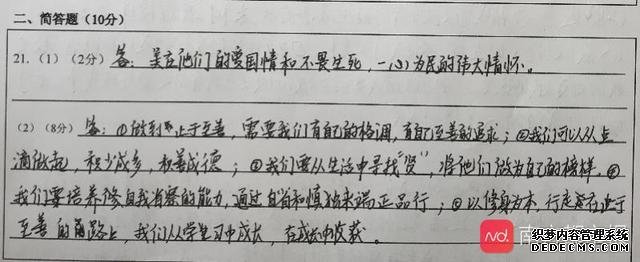 二、简答题（10分）
21.（1）（2分）答：美在他们的爱国情和不畏生死，一心为民的伟大情怀。
（2）（8分）答：①做到“止于至善，需要我们有自己的格调，有自己至善的追求；②我们可以从点
滴做起，积少成多，积善成德；③我们要从生活中寻找“贤”，将他们做为自己的榜样。④
我们要培养修自我省察的能力，通过自省和慎独来端正品行；⑤以修身为本，行走在止于
至善的道路上，我们从学习中成长，在成长中收获。
Nd.
南
内容管理系统